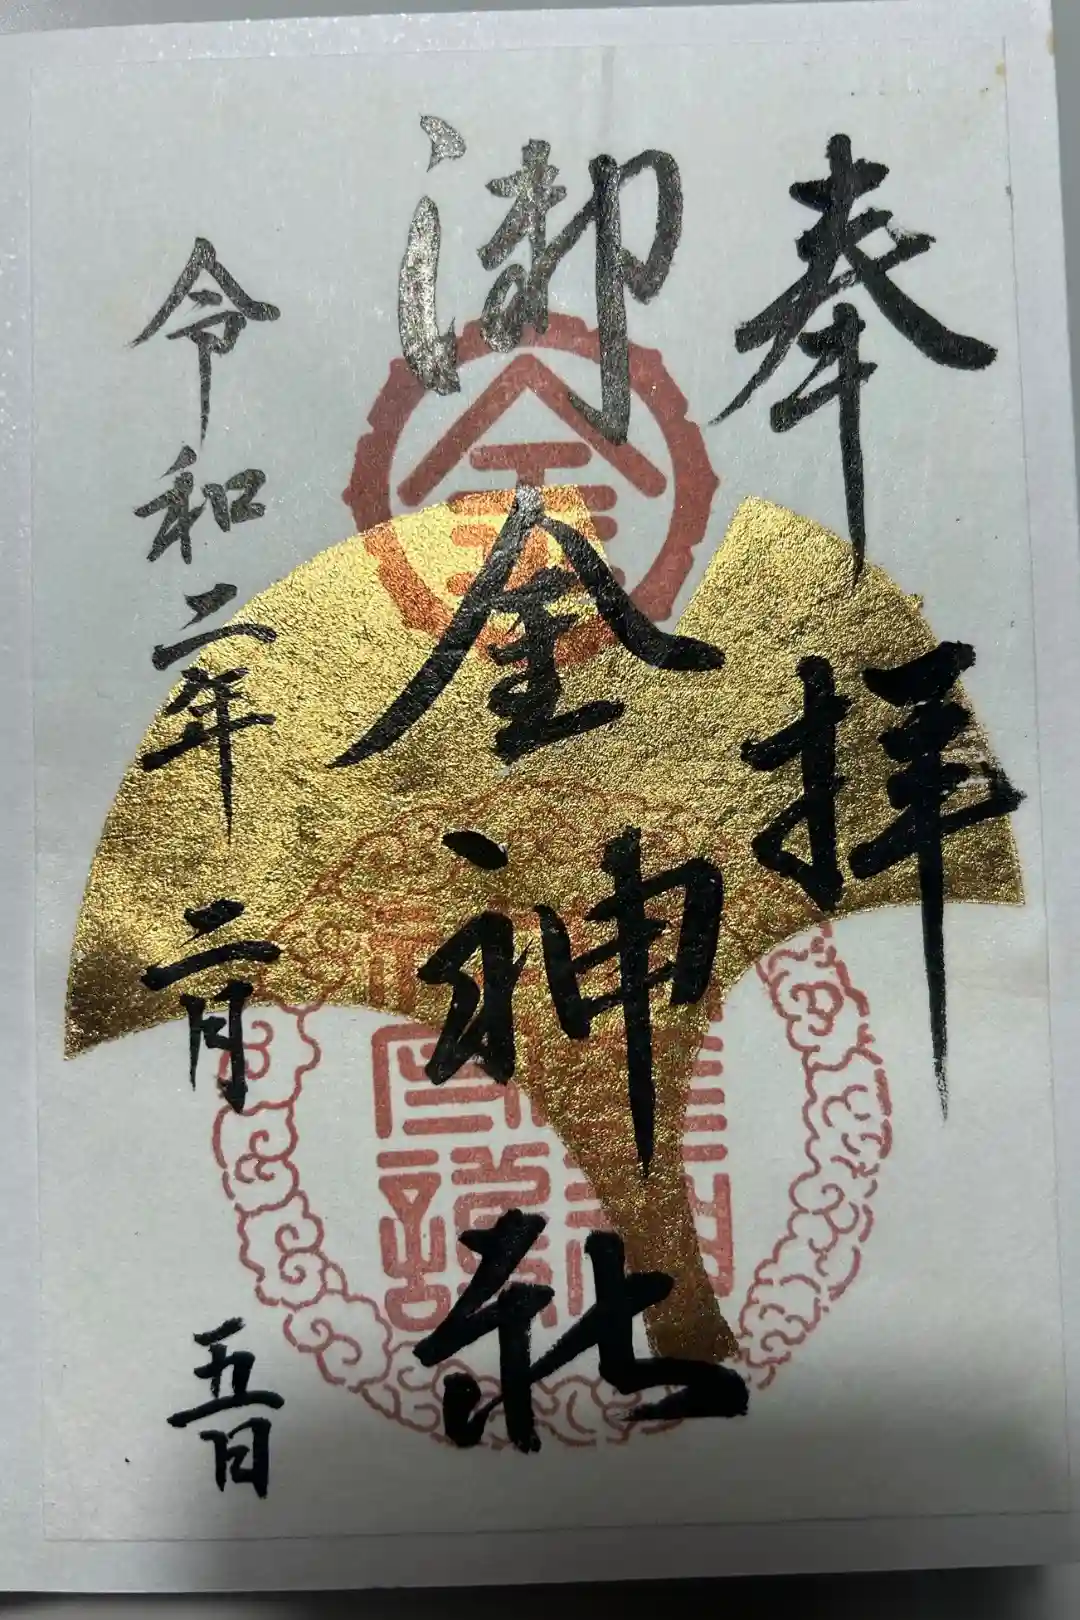 奉拝
御金神社
令和二年二月五日
金